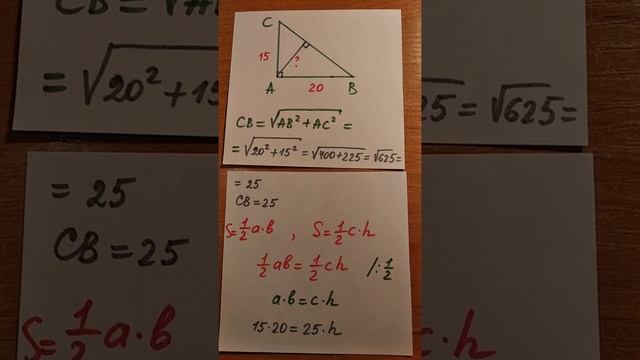 C
15
?
A
20
B
CB = √AB² + AC² =
= √20² + 15² = √400 + 225 = √625 =
= 25
CB = 25
S = 1/2 a·b , S = 1/2 c·h
1/2 ab = 1/2 ch /: 1/2
a·b = c·h
15·20 = 25·h